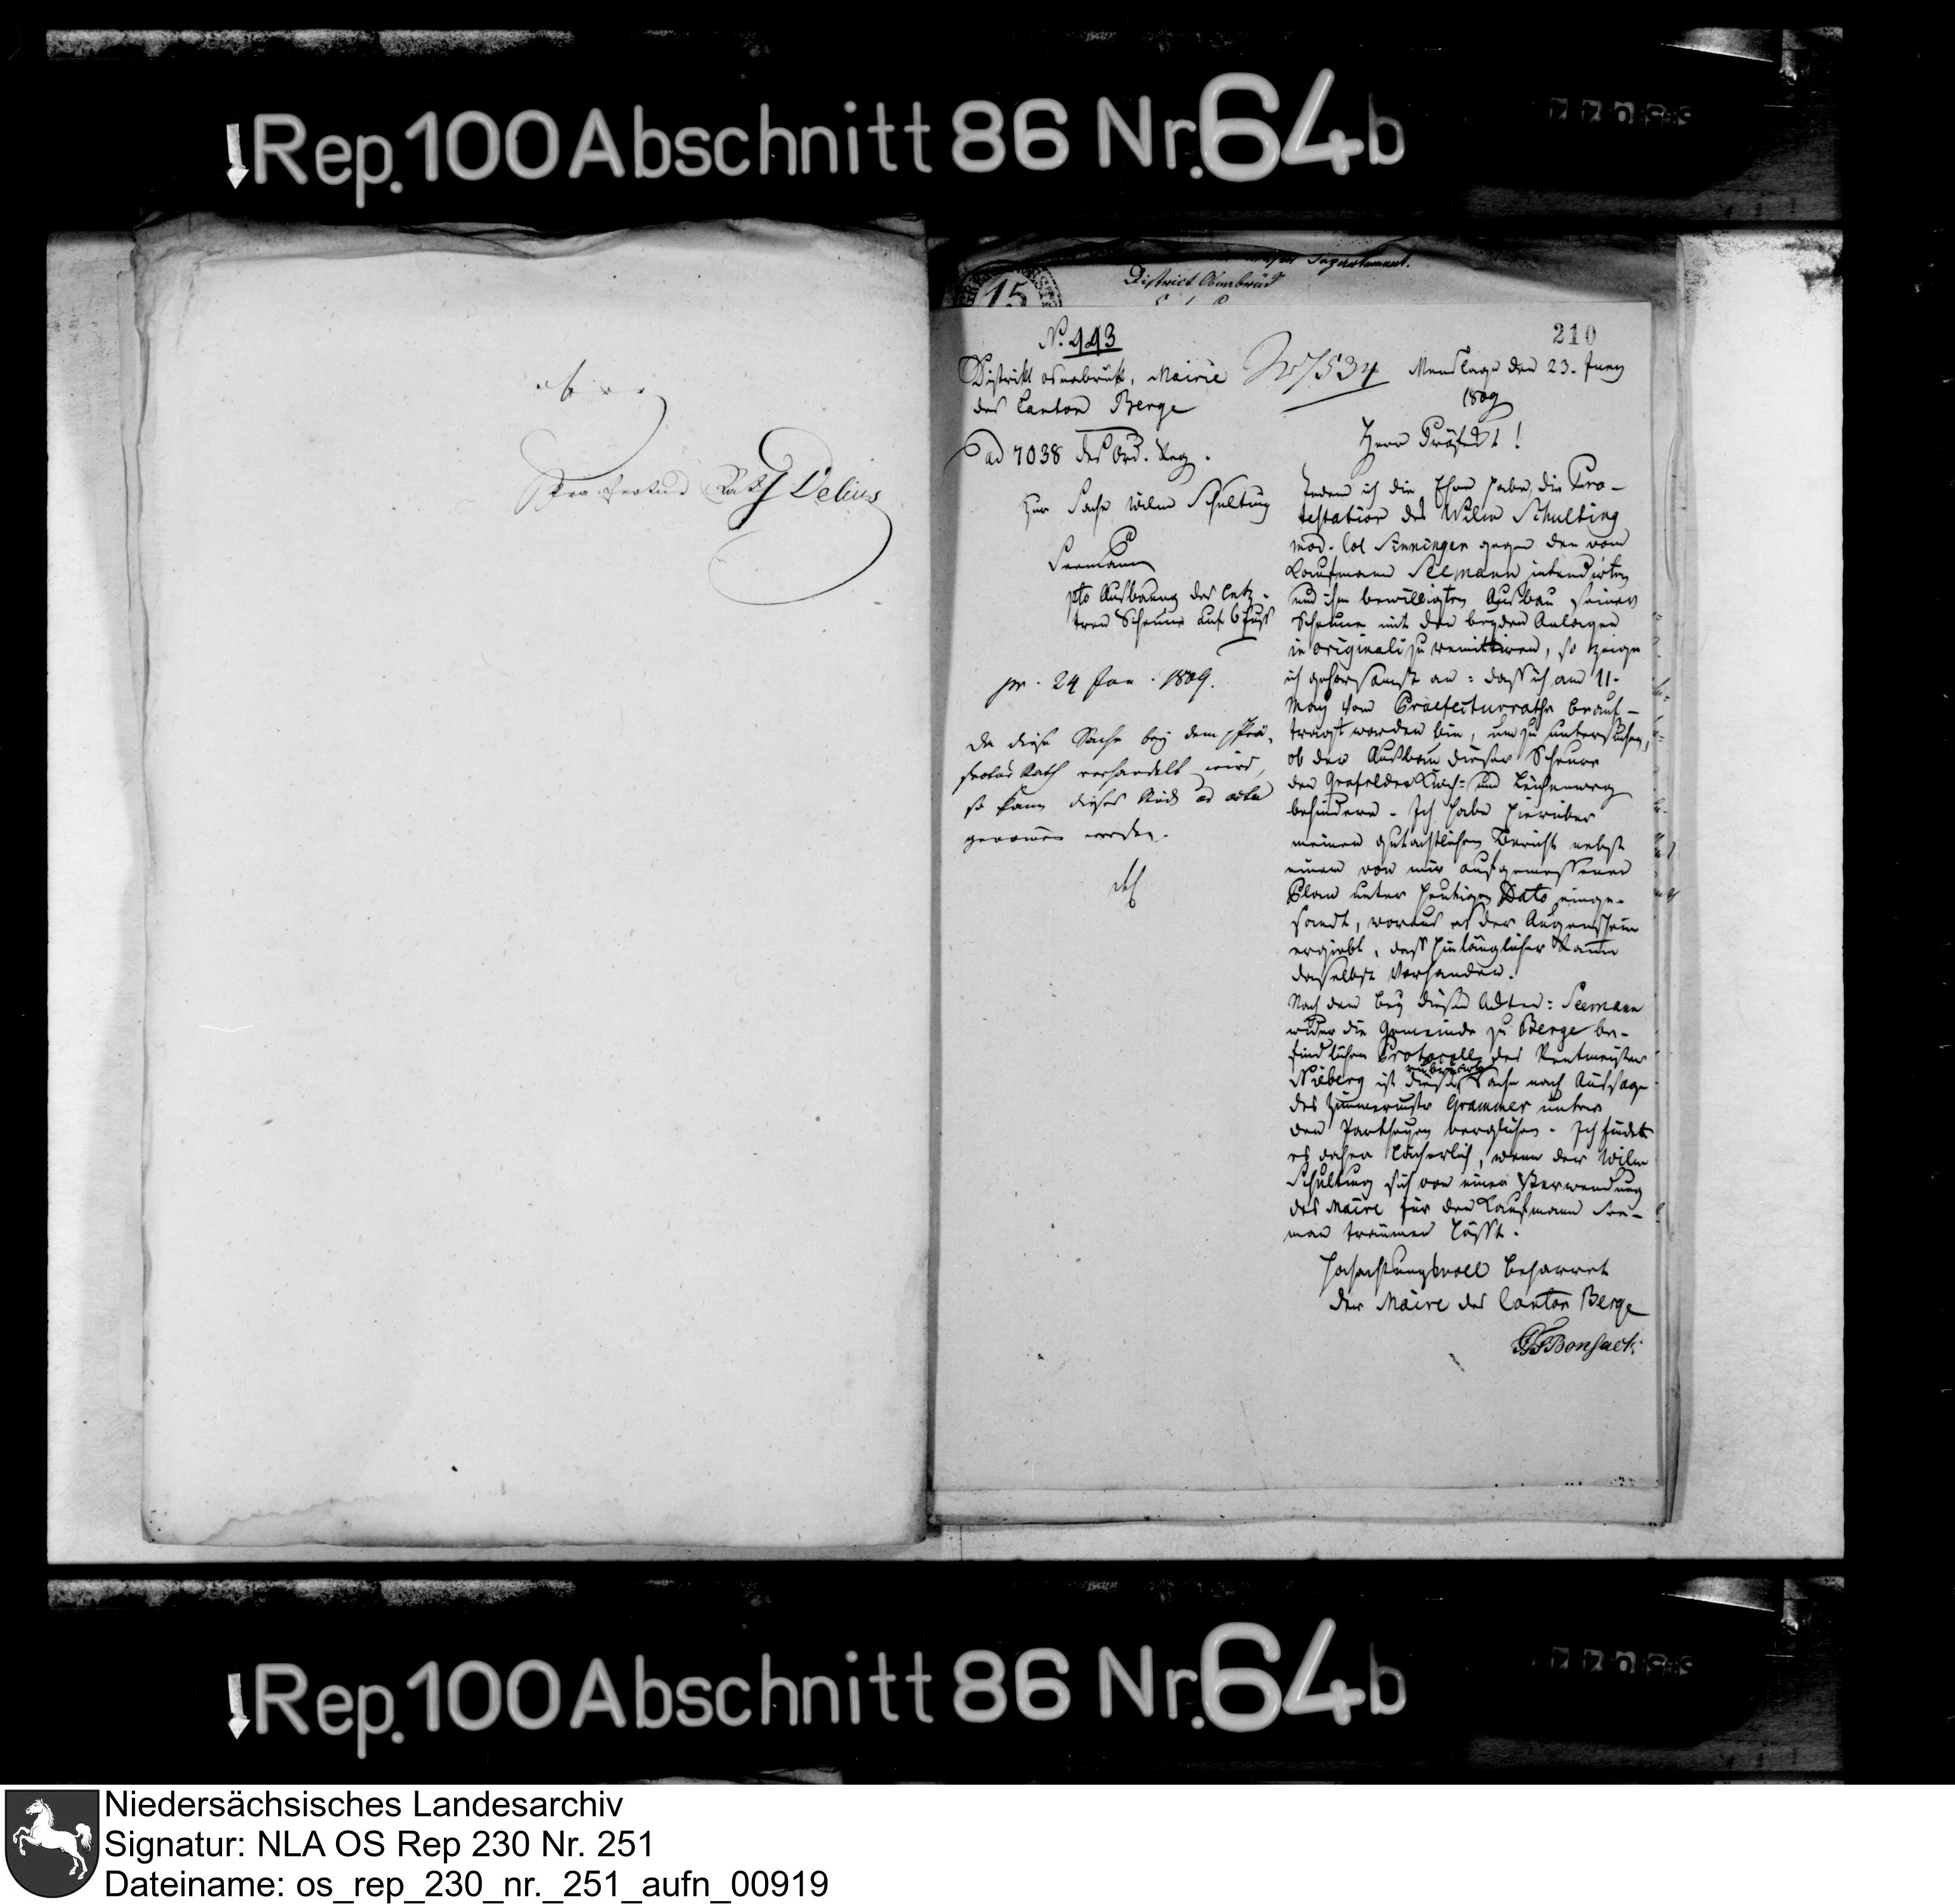 Rep. 100 Abschnitt 86 Nr. 64b
Praefectur Rath Delius
District Osnabrück
15
210
No. 993
Distrikt Osnabrük, Mairie
des Canton Berge
ad 7038 des Ord. Reg.
Zur Sache Wilm Schulting
Seemann
pto Ausbaung der letz-
tren Scheune auf 6 Fuss
pr. 24 Jun. 1809.
Da diese Sache bey dem Prä-
fectur Rath verhandelt wird,
so kann dieses Stück ad acta
genommen werden.
Menslage den 23. Juny
1809
Herr Präfect!
Indem ich die Ehre habe, die Pro-
testation des Wilm Schulting
mod. Col. Sinningen gegen den vom
Kaufmann Seemann intendirten
und ihm bewilligten Ausbau seiner
Scheune mit den beyden Anlagen
in originali zu remittiren, so zeige
ich gehorsamst an: dass ich am 11.
May vom Praefecturrathe beauf-
tragt worden bin, um zu untersuchen,
ob der Ausbau dieser Scheune
den Grafelder Kirch- und Leichenweg
behindere. Ich habe hierüber
meinen gutachtlichen Bericht nebst
einem von mir aufgemessenen
Plan unter heutigen Dato einge-
sandt, woraus es der Augenschein
ergiebt, dass hinlänglicher Raum
daselbst vorhanden.
Nach dem bey diesen Acten: Seemann
wider die Gemeinde zu Berge be-
findlichen Protocolle des Rentmeister
Nieberg ist diese Sache nach Aussage
des Zimmermstr Grammer unter
den Partheyen verglichen. Ich finde
es daher lächerlich, wenn der Wilm
Schulting sich von einer Verwendung
des Maire für den Kaufmann See-
man träumen lässt.
Hochachtungsvoll beharret
der Maire des Canton Berge
Bonsack
Rep. 100 Abschnitt 86 Nr. 64b
Niedersächsisches Landesarchiv
Signatur: NLA OS Rep 230 Nr. 251
Dateiname: os_rep_230_nr._251_aufn_00919